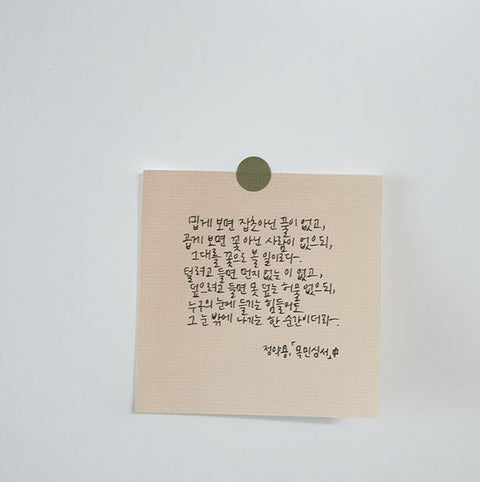 밉게 보면 잡초아닌 풀이 없고,
곱게 보면 꽃 아닌 사람이 없으되,
그대를 꽃으로 볼 일이로다.
털려고 들면 먼지 없는 이 없고,
덮으려고 들면 못 덮는 허물 없으되,
누구의 눈에 들기는 힘들어도
그 눈 밖에 나기는 한 순간이더라.
정약용,「목민심서」中